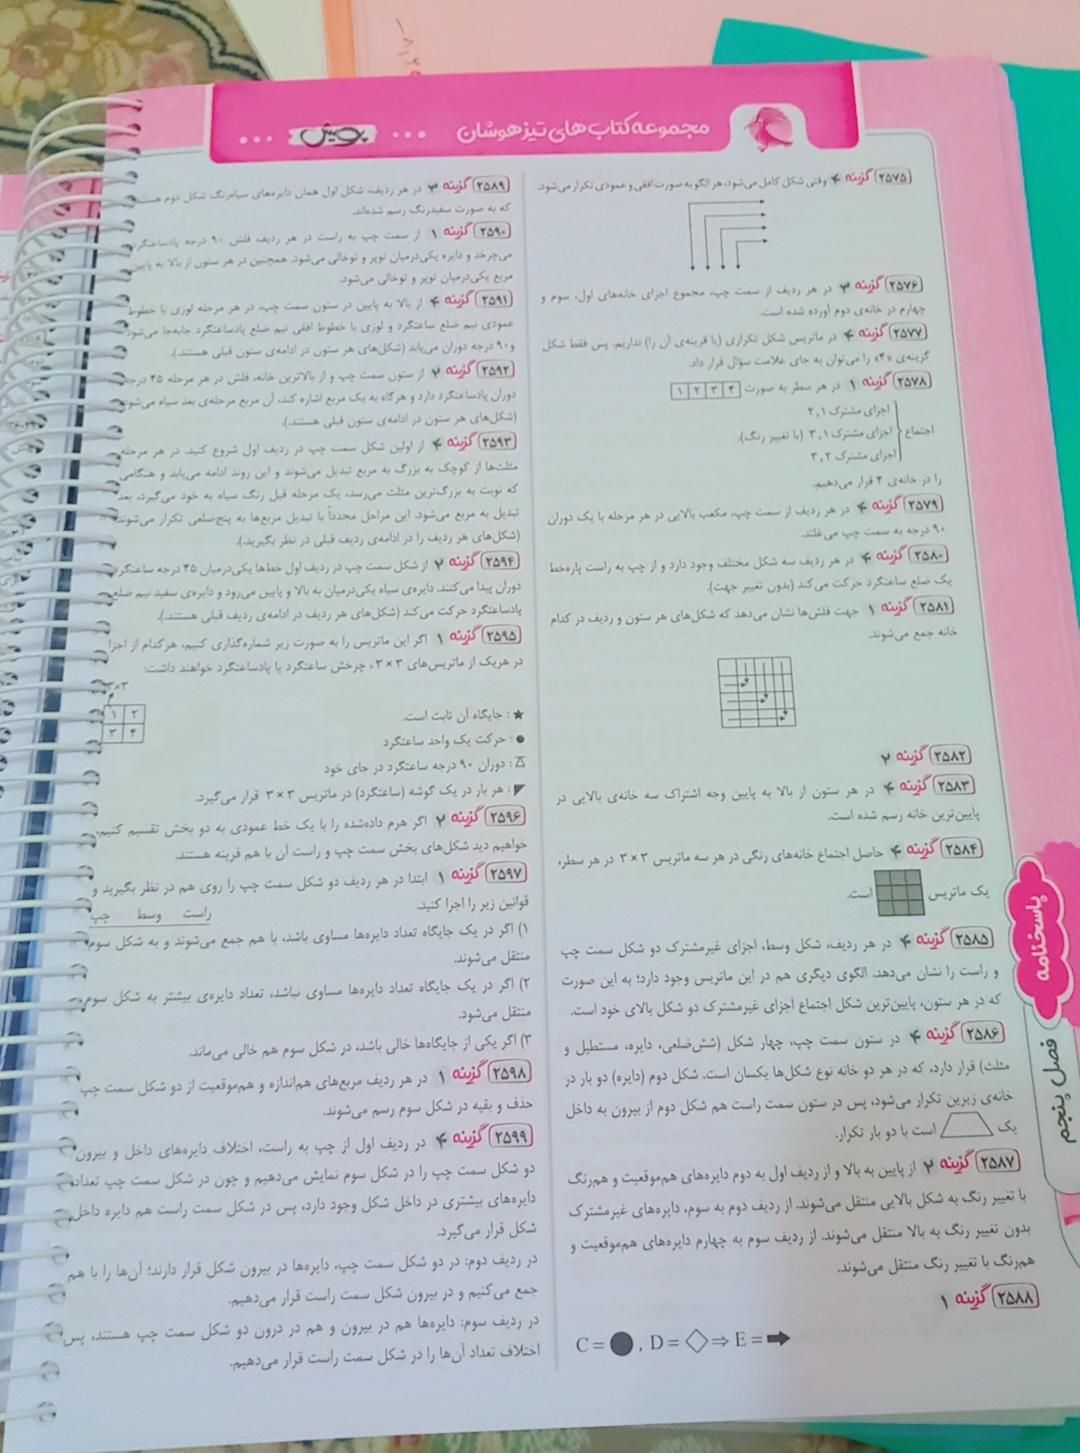 مجموعه کتاب های تیزهوشان ... پویش ...
۲۵۷۵ گزینه ۴ وقتی شکل کامل می‌شود، هر الگو به صورت افقی و عمودی تکرار می‌شود.
۲۵۷۶ گزینه ۳ در هر ردیف از سمت چپ، مجموع اجزای خانه‌های اول، سوم و
چهارم در خانه‌ی دوم آورده شده است.
۲۵۷۷ گزینه ۴ در ماتریس شکل تکراری (یا قرینه‌ی آن را) نداریم. پس فقط شکل
گزینه‌ی «۴» را می‌توان به جای علامت سؤال قرار داد.
۲۵۷۸ گزینه ۱ در هر سطر به صورت ۱ ۲ ۳ ۴
اجزای مشترک ۲,۱
اجتماع اجزای مشترک ۳,۱ (با تغییر رنگ).
اجزای مشترک ۳,۲
را در خانه‌ی ۴ قرار می‌دهیم.
۲۵۷۹ گزینه ۴ در هر ردیف از سمت چپ، مکعب بالایی در هر مرحله با یک دوران
۹۰ درجه به سمت چپ می‌غلتد.
۲۵۸۰ گزینه ۴ در هر ردیف سه شکل مختلف وجود دارد و از چپ به راست پاره‌خط
یک ضلع ساعتگرد حرکت می‌کند (بدون تغییر جهت).
۲۵۸۱ گزینه ۱ جهت فلش‌ها نشان می‌دهد که شکل‌های هر ستون و ردیف در کدام
خانه جمع می‌شوند.
۲۵۸۲ گزینه ۲
۲۵۸۳ گزینه ۴ در هر ستون از بالا به پایین وجه اشتراک سه خانه‌ی بالایی در
پایین‌ترین خانه رسم شده است.
۲۵۸۴ گزینه ۴ حاصل اجتماع خانه‌های رنگی در هر سه ماتریس ۳×۳ در هر سطر،
یک ماتریس است.
۲۵۸۵ گزینه ۴ در هر ردیف، شکل وسط، اجزای غیرمشترک دو شکل سمت چپ
و راست را نشان می‌دهد. الگوی دیگری هم در این ماتریس وجود دارد؛ به این صورت
که در هر ستون، پایین‌ترین شکل اجتماع اجزای غیرمشترک دو شکل بالای خود است.
۲۵۸۶ گزینه ۴ در ستون سمت چپ، چهار شکل (شش‌ضلعی، دایره، مستطیل و
مثلث) قرار دارد، که در هر دو خانه نوع شکل‌ها یکسان است. شکل دوم (دایره) دو بار در
خانه‌ی زیرین تکرار می‌شود، پس در ستون سمت راست هم شکل دوم از بیرون به داخل
یک است با دو بار تکرار.
۲۵۸۷ گزینه ۲ از پایین به بالا و از ردیف اول به دوم دایره‌های هم‌موقعیت و هم‌رنگ
با تغییر رنگ به شکل بالایی منتقل می‌شوند. از ردیف دوم به سوم، دایره‌های غیرمشترک
بدون تغییر رنگ به بالا منتقل می‌شوند. از ردیف سوم به چهارم دایره‌های هم‌موقعیت و
هم‌رنگ با تغییر رنگ منتقل می‌شوند.
۲۵۸۸ گزینه ۱
C = ●, D = ◇ ⇒ E = ➡
۲۵۸۹ گزینه ۳ در هر ردیف، شکل اول همان دایره‌های سیاه‌رنگ شکل دوم
که به صورت سفیدرنگ رسم شده‌اند.
۲۵۹۰ گزینه ۱ از سمت چپ به راست در هر ردیف فلش ۹۰ درجه پادساعتگرد
می‌چرخد و دایره یکی‌درمیان توپر و توخالی می‌شود. همچنین در هر ستون از بالا به پایین
مربع یکی‌درمیان توپر و توخالی می‌شود.
۲۵۹۱ گزینه ۴ از بالا به پایین در ستون سمت چپ، در هر مرحله لوزی با خطوط
عمودی نیم ضلع ساعتگرد و لوزی با خطوط افقی نیم ضلع پادساعتگرد جابه‌جا می‌شود
و ۹۰ درجه دوران می‌یابد (شکل‌های هر ستون در ادامه‌ی ستون قبلی هستند.).
۲۵۹۲ گزینه ۲ از ستون سمت چپ و از بالاترین خانه، فلش در هر مرحله ۴۵ درجه
دوران پادساعتگرد دارد و هرگاه به یک مربع اشاره کند، آن مربع مرحله‌ی بعد سیاه می‌شود
(شکل‌های هر ستون در ادامه‌ی ستون قبلی هستند.).
۲۵۹۳ گزینه ۴ از اولین شکل سمت چپ در ردیف اول شروع کنید. در هر مرحله
مثلث‌ها از کوچک به بزرگ به مربع تبدیل می‌شوند و این روند ادامه می‌یابد و هنگامی
که نوبت به بزرگ‌ترین مثلث می‌رسد، یک مرحله قبل رنگ سیاه به خود می‌گیرد، بعد
تبدیل به مربع می‌شود. این مراحل مجدداً با تبدیل مربع‌ها به پنج‌ضلعی تکرار می‌شوند
(شکل‌های هر ردیف را در ادامه‌ی ردیف قبلی در نظر بگیرید.).
۲۵۹۴ گزینه ۲ از شکل سمت چپ در ردیف اول خط‌ها یکی‌درمیان ۴۵ درجه ساعتگرد
دوران پیدا می‌کنند. دایره‌ی سیاه یکی‌درمیان به بالا و پایین می‌رود و دایره‌ی سفید نیم ضلع
پادساعتگرد حرکت می‌کند (شکل‌های هر ردیف در ادامه‌ی ردیف قبلی هستند.).
۲۵۹۵ گزینه ۱ اگر این ماتریس را به صورت زیر شماره‌گذاری کنیم، هرکدام از اجزا
در هریک از ماتریس‌های ۳×۳، چرخش ساعتگرد یا پادساعتگرد خواهند داشت:
۳×۳
۱ ۲
۳ ۴
★ : جایگاه آن ثابت است.
● : حرکت یک واحد ساعتگرد
: دوران ۹۰ درجه ساعتگرد در جای خود
◤ : هر بار در یک گوشه (ساعتگرد) در ماتریس ۳×۳ قرار می‌گیرد.
۲۵۹۶ گزینه ۲ اگر هرم داده‌شده را با یک خط عمودی به دو بخش تقسیم کنیم،
خواهیم دید شکل‌های بخش سمت چپ و راست آن با هم قرینه هستند.
۲۵۹۷ گزینه ۱ ابتدا در هر ردیف دو شکل سمت چپ را روی هم در نظر بگیرید و
قوانین زیر را اجرا کنید.
راست وسط چپ
۱) اگر در یک جایگاه تعداد دایره‌ها مساوی باشد، با هم جمع می‌شوند و به شکل سوم
منتقل می‌شوند.
۲) اگر در یک جایگاه تعداد دایره‌ها مساوی نباشد، تعداد دایره‌ی بیشتر به شکل سوم
منتقل می‌شود.
۳) اگر یکی از جایگاه‌ها خالی باشد، در شکل سوم هم خالی می‌ماند.
۲۵۹۸ گزینه ۱ در هر ردیف مربع‌های هم‌اندازه و هم‌موقعیت از دو شکل سمت چپ
حذف و بقیه در شکل سوم رسم می‌شوند.
۲۵۹۹ گزینه ۴ در ردیف اول از چپ به راست، اختلاف دایره‌های داخل و بیرون
دو شکل سمت چپ را در شکل سوم نمایش می‌دهیم و چون در شکل سمت چپ تعداد
دایره‌های بیشتری در داخل شکل وجود دارد، پس در شکل سمت راست هم دایره داخل
شکل قرار می‌گیرد.
در ردیف دوم: در دو شکل سمت چپ، دایره‌ها در بیرون شکل قرار دارند؛ آن‌ها را با هم
جمع می‌کنیم و در بیرون شکل سمت راست قرار می‌دهیم.
در ردیف سوم: دایره‌ها هم در بیرون و هم در درون دو شکل سمت چپ هستند، پس
اختلاف تعداد آن‌ها را در شکل سمت راست قرار می‌دهیم.
پاسخنامه
فصل پنجم